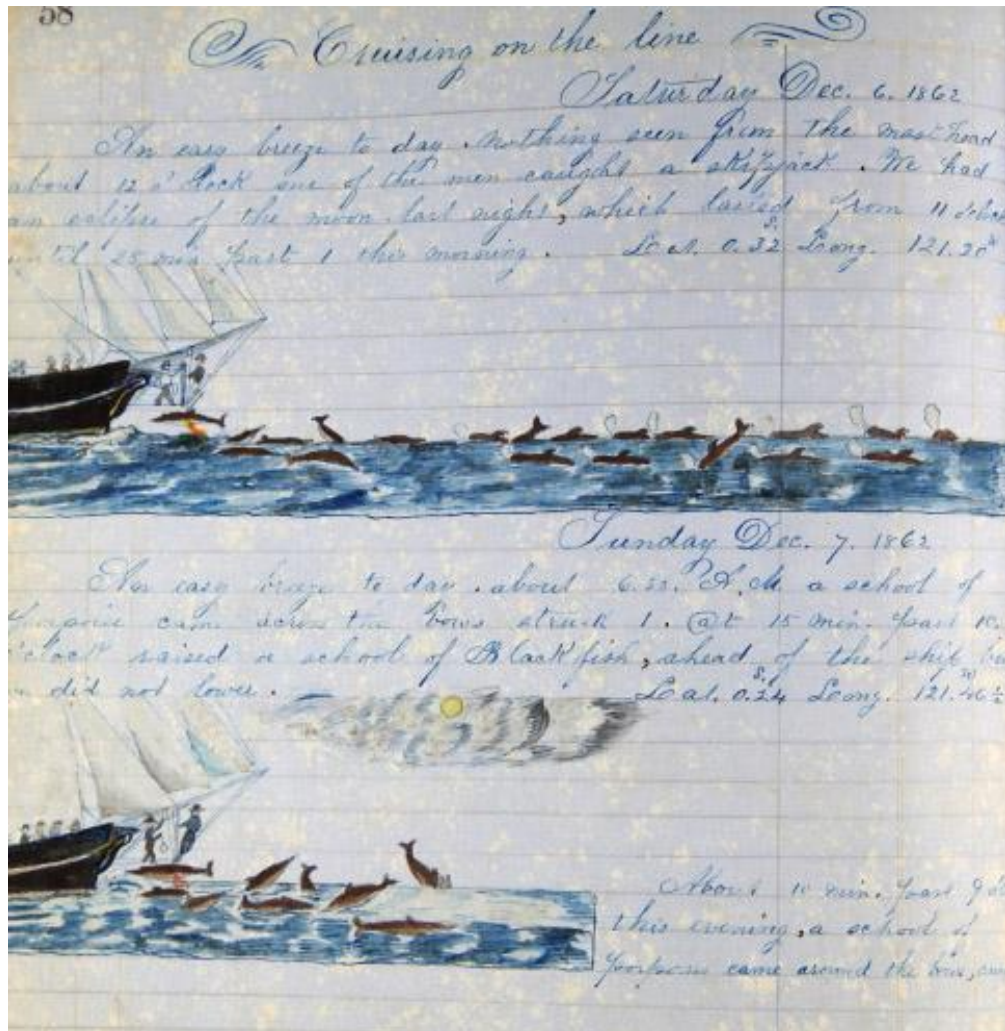 58
Cruising on the line
Saturday Dec. 6. 1862
An easy breeze to day. nothing seen from the mast head
about 12 o'clock one of the men caught a skipjack. We had
an eclipse of the moon last night, which lasted from 11
until 25 min past 1 this morning. Lat. 0.32 S. Long. 121.20
Sunday Dec. 7. 1862
An easy breeze to day. about 6.30. A.M a school of
porpoise came across the bows struck 1. @t 15 min. past 10
o'clock raised a school of Blackfish, ahead of the ship
did not lower. Lat. 0.24 S. Long. 121.46 W
About 10 min. past 9
this evening, a school of
porpoises came around the bow,